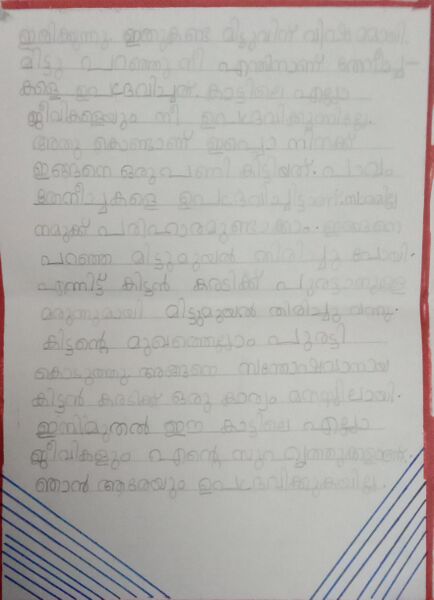 ഇരിക്കുന്നു. ഇതുകണ്ട മിട്ടുവിന് വിഷമമായി.
മിട്ടു പറഞ്ഞു നീ എന്തിനാണ് തേനീച്ച-
കളെ ഉപദ്രവിച്ചത്. കാട്ടിലെ എല്ലാ
ജീവികളെയും നീ ഉപദ്രവിക്കുന്നില്ലേ.
അതു കൊണ്ടാണ് ഇപ്പൊ നിനക്ക്
ഇങ്ങനെ ഒരു പണി കിട്ടിയത്. പാവം
തേനീച്ചകളെ ഉപദ്രവിച്ചിട്ടാണ്. സാരമില്ല
നമുക്ക് പരിഹാരമുണ്ടാക്കാം. ഇങ്ങനെ
പറഞ്ഞ മിട്ടുമുയൽ തിരിച്ചു പോയി.
എന്നിട്ട് കിട്ടൻ കരടിക്ക് പുരട്ടാനുള്ള
മരുന്നുമായി മിട്ടുമുയൽ തിരിച്ചു വന്നു.
കിട്ടന്റെ മുഖത്തെല്ലാം പുരട്ടി
കൊടുത്തു അങ്ങനെ സന്തോഷവാനായ
കിട്ടൻ കരടിക്ക് ഒരു കാര്യം മനസ്സിലായി.
ഇനിമുതൽ ഈ കാട്ടിലെ എല്ലാ
ജീവികളും എന്റെ സുഹൃത്തുക്കളാണ്.
ഞാൻ ആരേയും ഉപദ്രവിക്കുകയില്ല.